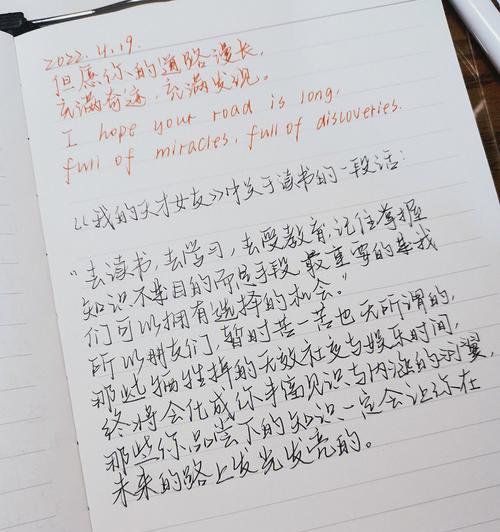 2022.4.19.
但愿你的道路漫长,
充满奇迹,充满发现。
I hope your road is long,
full of miracles, full of discoveries.
《我的天才女友》中关于读书的一段话:
“去读书,去学习,去受教育,记住掌握
知识不是目的而是手段,最重要的是我
们可以拥有选择的机会。”
所以朋友们,暂时苦一苦也无所谓的,
那些牺牲掉的无效社交与娱乐时间,
终将会化成你丰富见识与内涵的羽翼,
那些你品尝下的知识,一定会让你在
未来的路上发光发亮的。